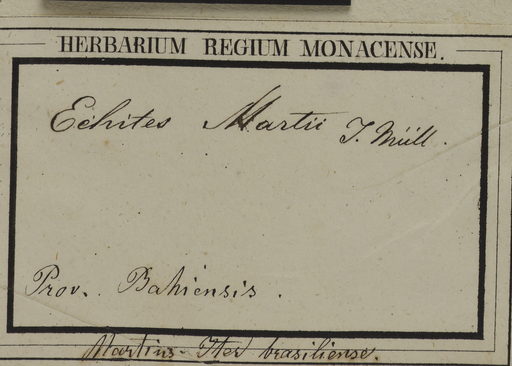 HERBARIUM REGIUM MONACENSE.
Echites Martii J. Müll.
Prov. Bahiensis.
Martius Iter brasiliense.